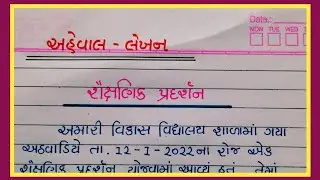 Date:
MON TUE WED THU
અહેવાલ - લેખન
શૈક્ષણિક પ્રદર્શન
અમારી વિકાસ વિદ્યાલય શાળામાં ગયા
અઠવાડિયે તા. 12-1-2022ના રોજ એક
શૈક્ષણિક પ્રદર્શન યોજવામાં આવ્યું હતું. તેમાં